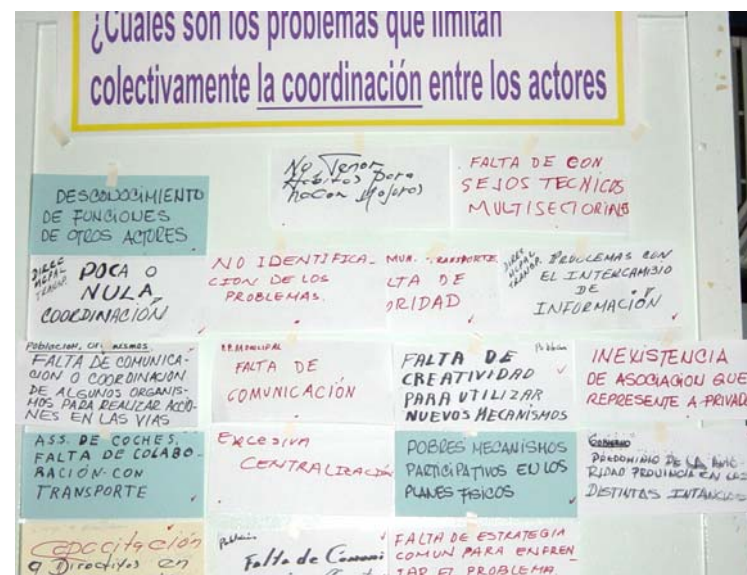 ¿Cuáles son los problemas que limitan
colectivamente la coordinación entre los actores
DESCONOCIMIENTO
DE FUNCIONES
DE OTROS ACTORES
No Tener
Habitos para
hacer Mejoras
FALTA DE CON
SEJOS TECNICOS
MULTISECTORIAS
DIREC
MCPAL
TRANSP.
POCA O
NULA
COORDINACIÓN
NO IDENTIFICA-
CION DE LOS
PROBLEMAS.
MUN. TRANSPORTE
LTA DE
ORIDAD
DIREC
MCPAL
TRANSP.
PROBLEMAS CON
EL INTERCAMBIO
DE
INFORMACIÓN
Población, Organismos
FALTA DE COMUNICA-
CION O COORDINACION
DE ALGUNOS ORGANIS-
MOS PARA REALIZAR ACCIO-
NES EN LAS VIAS
MUNICIPAL
FALTA DE
COMUNICACIÓN
Población
FALTA DE
CREATIVIDAD
PARA UTILIZAR
NUEVOS MECANISMOS
INEXISTENCIA
DE ASOCIACION QUE
REPRESENTE A PRIVADO
ASS. DE COCHES.
FALTA DE COLABO-
RACIÓN CON
TRANSPORTE
Excesiva
CENTRALIZACIÓN
POBRES MECANISMOS
PARTICIPATIVOS EN LOS
PLANES FISICOS
GOBIERNO
PREDOMINIO DE LA AUTO
RIDAD PROVINCIA EN LAS
DISTINTAS INTANCIAS
Capacitación
a Directivos en
Población
Falta de Comuni
FALTA DE ESTRATEGIA
COMUN PARA ENFREN
TAR EL PROBLEMA